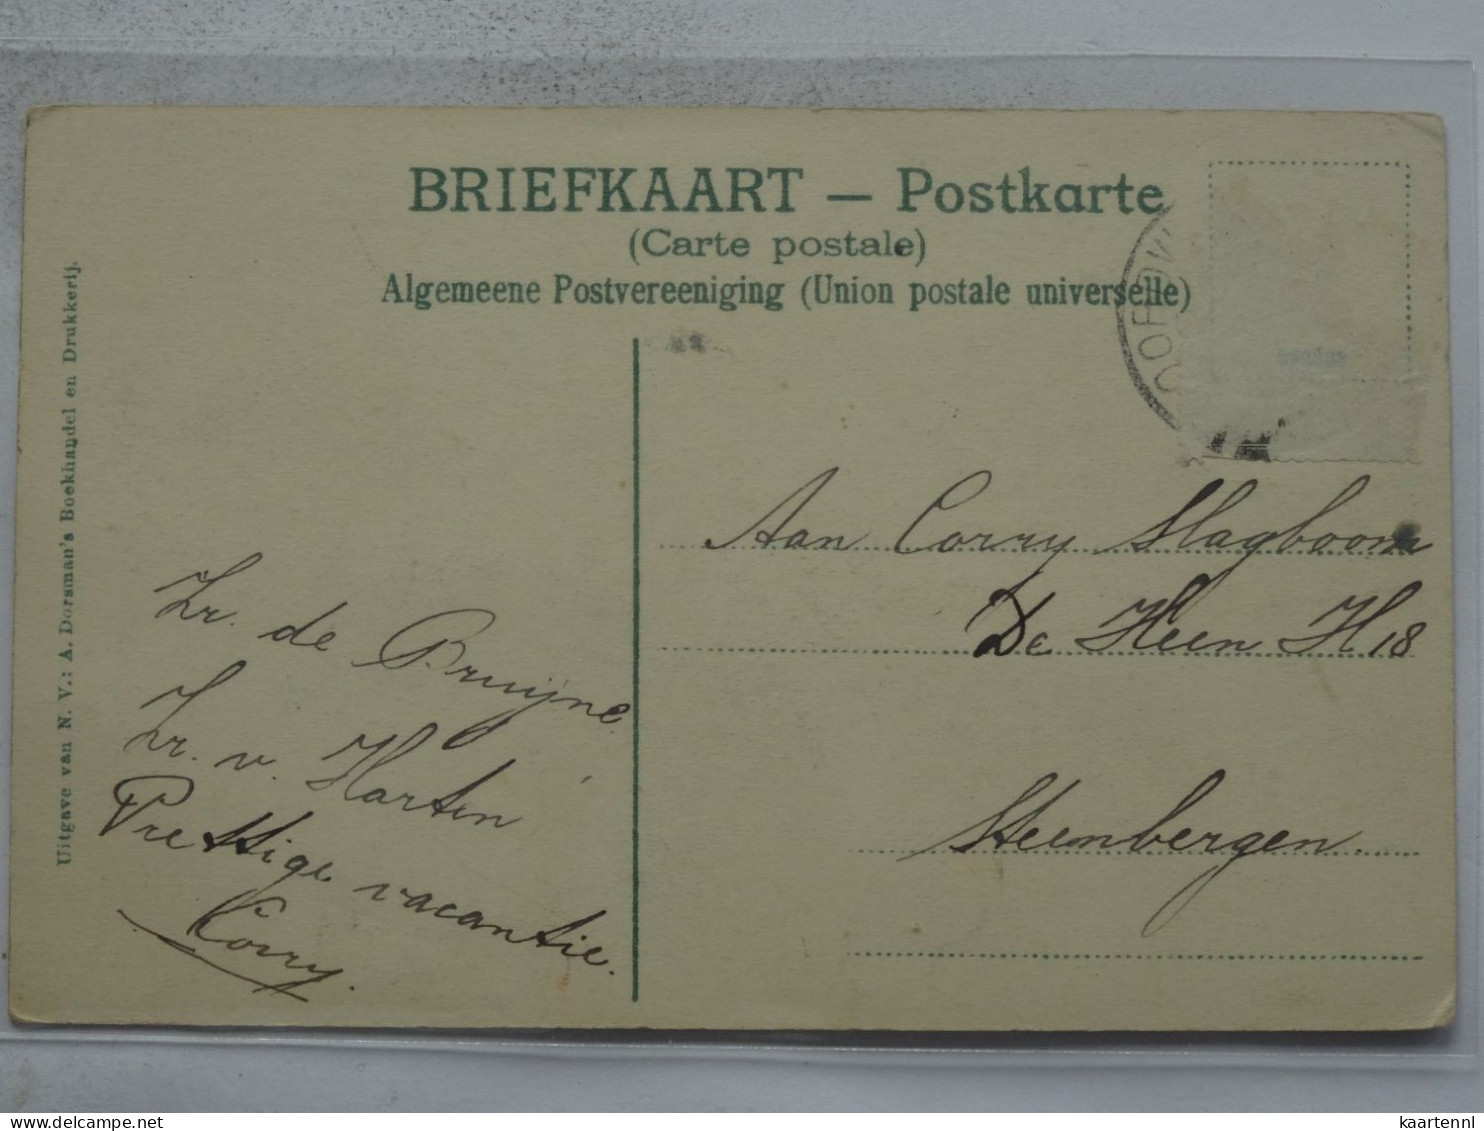 BRIEFKAART — Postkarte
(Carte postale)
Algemeene Postvereeniging (Union postale universelle)
Uitgave van N. V.: A. Dorsman's Boekhandel en Drukkerij.
Zr. de Bruijne
Zr. v. Harten
Prettige vacantie.
Corry.
Aan Corry Slagboom
De Heen H 18
Steenbergen.
kaartennl